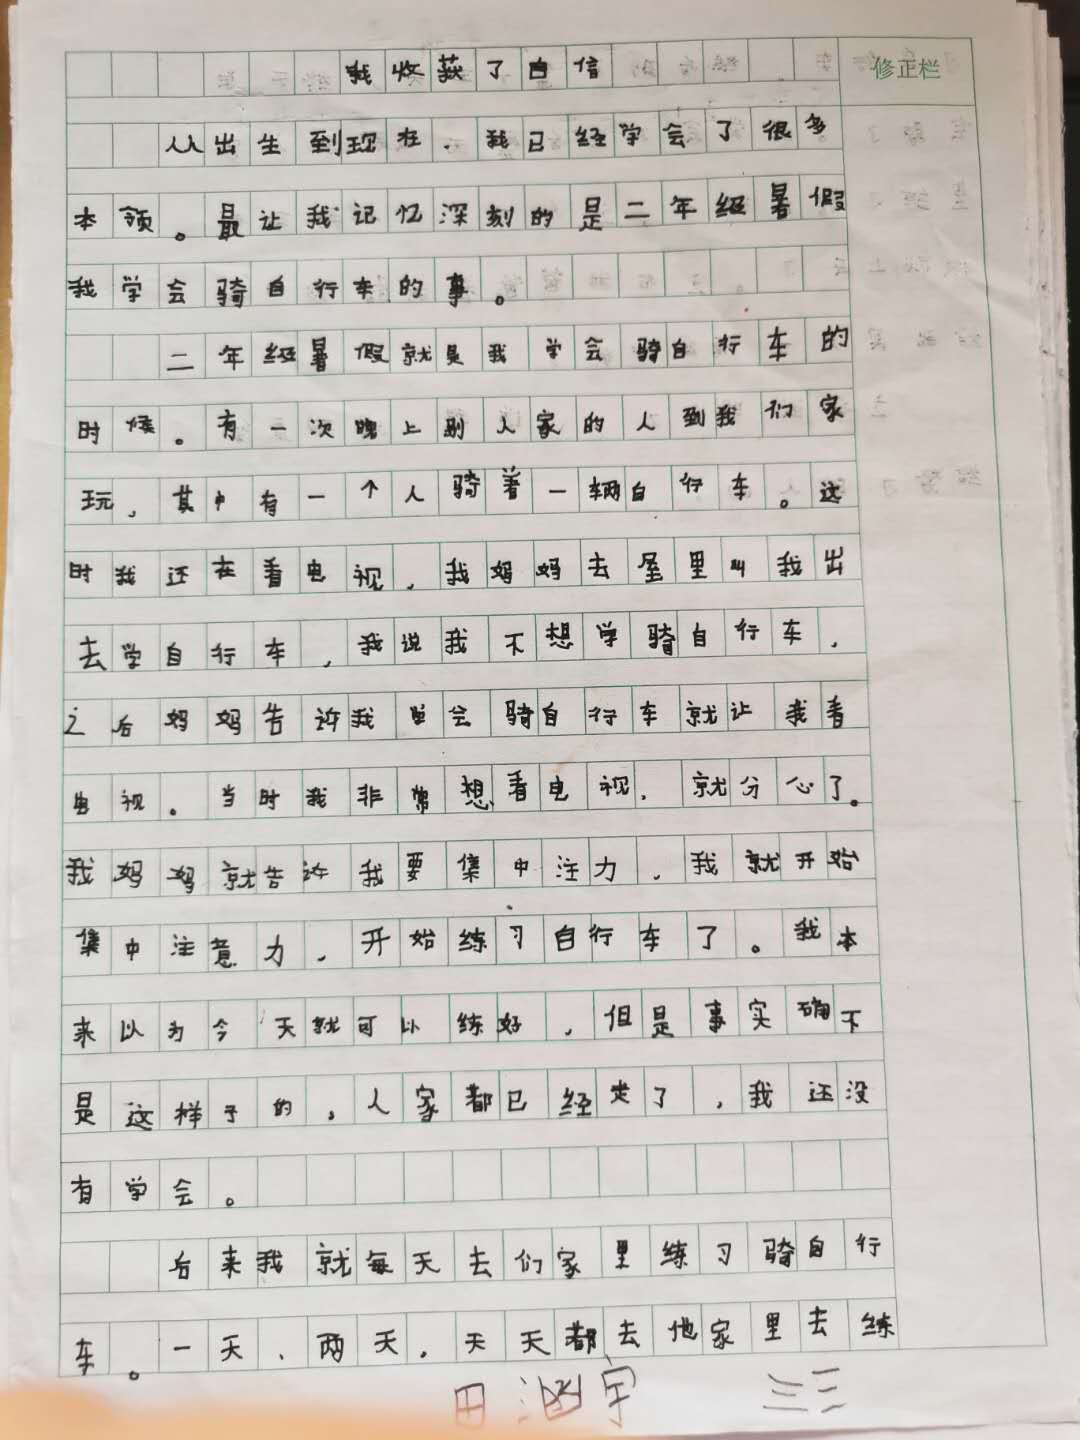 我收获了自信
修正栏
从出生到现在，我已经学会了很多
本领。最让我记忆深刻的是二年级暑假
我学会骑自行车的事。
二年级暑假就是我学会骑自行车的
时候。有一次晚上别人家的人到我们家
玩，其中有一个人骑着一辆自行车。这
时我还在看电视，我妈妈去屋里叫我出
去学自行车，我说我不想学骑自行车，
之后妈妈告许我学会骑自行车就让我看
电视。当时我非常想看电视，就分心了。
我妈妈就告许我要集中注力，我就开始
集中注意力，开始练习自行车了。我本
来以为今天就可以练好，但是事实确不
是这样子的，人家都已经走了，我还没
有学会。
后来我就每天去们家里练习骑自行
车。一天、两天，天天都去他家里去练
田涵宇 三三